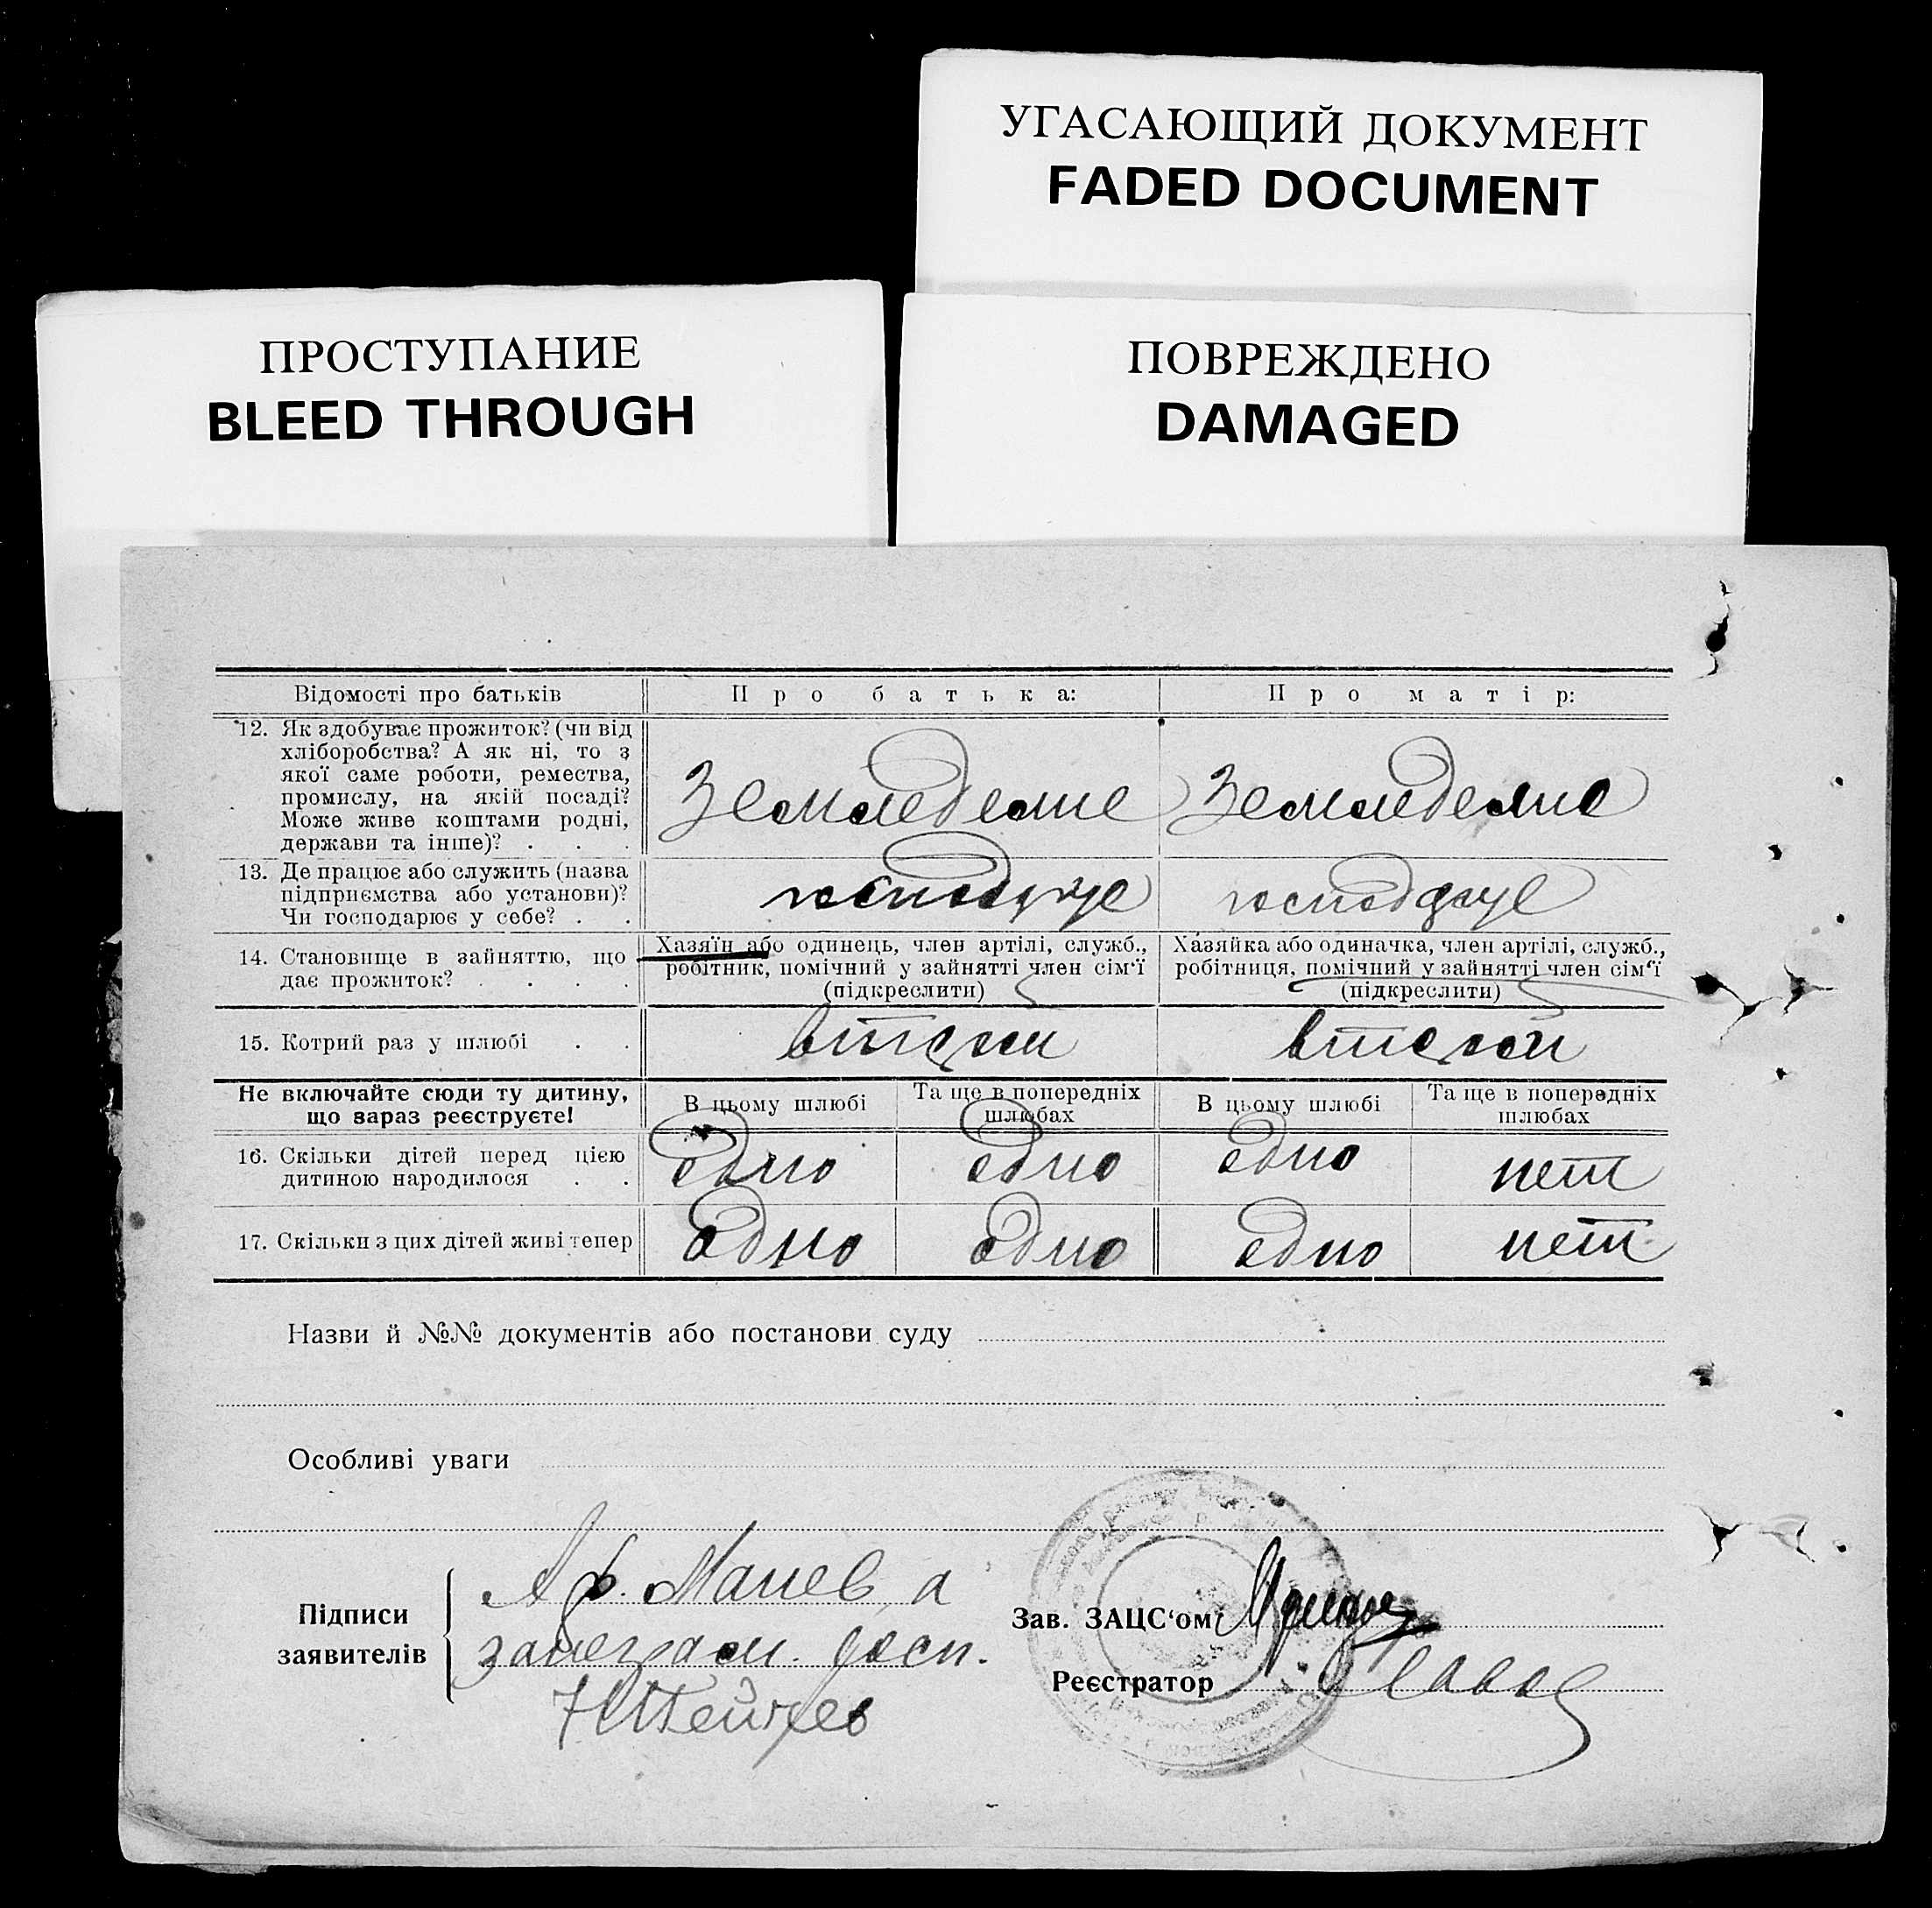 УГАСАЮЩИЙ ДОКУМЕНТ
FADED DOCUMENT
ПРОСТУПАНИЕ
BLEED THROUGH
ПОВРЕЖДЕНО
DAMAGED
Відомості про батьків
Про батька:
Про матір:
12. Як здобуває прожиток? (чи від
хліборобства? А як ні, то з
якої саме роботи, ремества,
промислу, на якій посаді?
Може живе коштами родні,
держави та інше)? . . .
Земледелие
Земледелие
13. Де працює або служить (назва
підприємства або установи)?
Чи господарює у себе? . .
14. Становище в зайняттю, що
дає прожиток? . . . .
Хазяїн або одинець, член артілі, служб.,
робітник, помічний у зайнятті член сім'ї
(підкреслити)
Хазяйка або одиначка, член артілі, служб.,
робітниця, помічний у зайнятті член сім'ї
(підкреслити)
15. Котрий раз у шлюбі . .
второй
второй
Не включайте сюди ту дитину,
що зараз реєструєте!
В цьому шлюбі
Та ще в попередніх
шлюбах
В цьому шлюбі
Та ще в попередніх
шлюбах
16. Скільки дітей перед цією
дитиною народилося . .
одно
одно
одно
нет
17. Скільки з цих дітей живі тепер
одно
одно
одно
нет
Назви й №№ документів або постанови суду
Особливі уваги
Підписи
заявителів
Зав. ЗАЦС'ом
Реєстратор